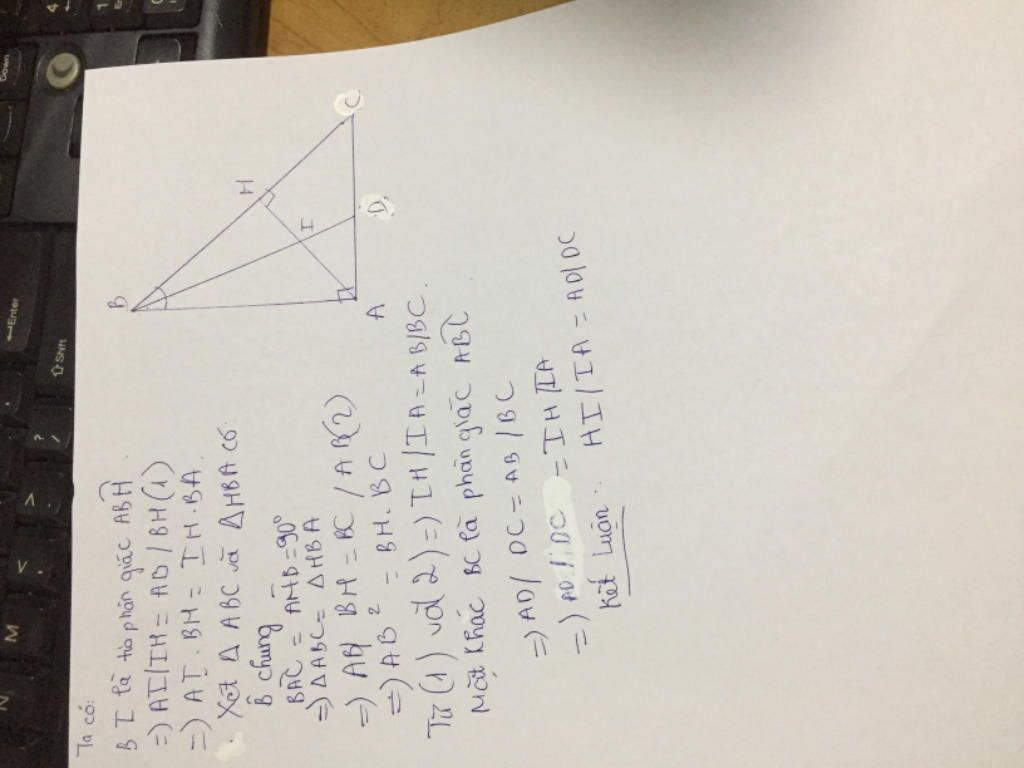 Ta có:
B I là tia phân giác ABH
=) AI/IH = AB/BH (1)
=) AI.BH = IH.BA.
Xét Δ ABC và ΔHBA có:
B chung
BAC = AHB = 90°
=) ΔABC = ΔHBA
=) AB/ BH = BC / AB(2)
=) AB² = BH. BC
Từ (1) và 2) =) IH/IA = AB/BC.
Mặt khác BC là phân giác ABC
=) AD/ DC = AB/BC
=) AD/DC = IH/IA
Kết Luận: HI/IA = AD/DC
B
H
C
I
D
A
Enter
Shift
Down
?
/
>
.
<
,
M
N